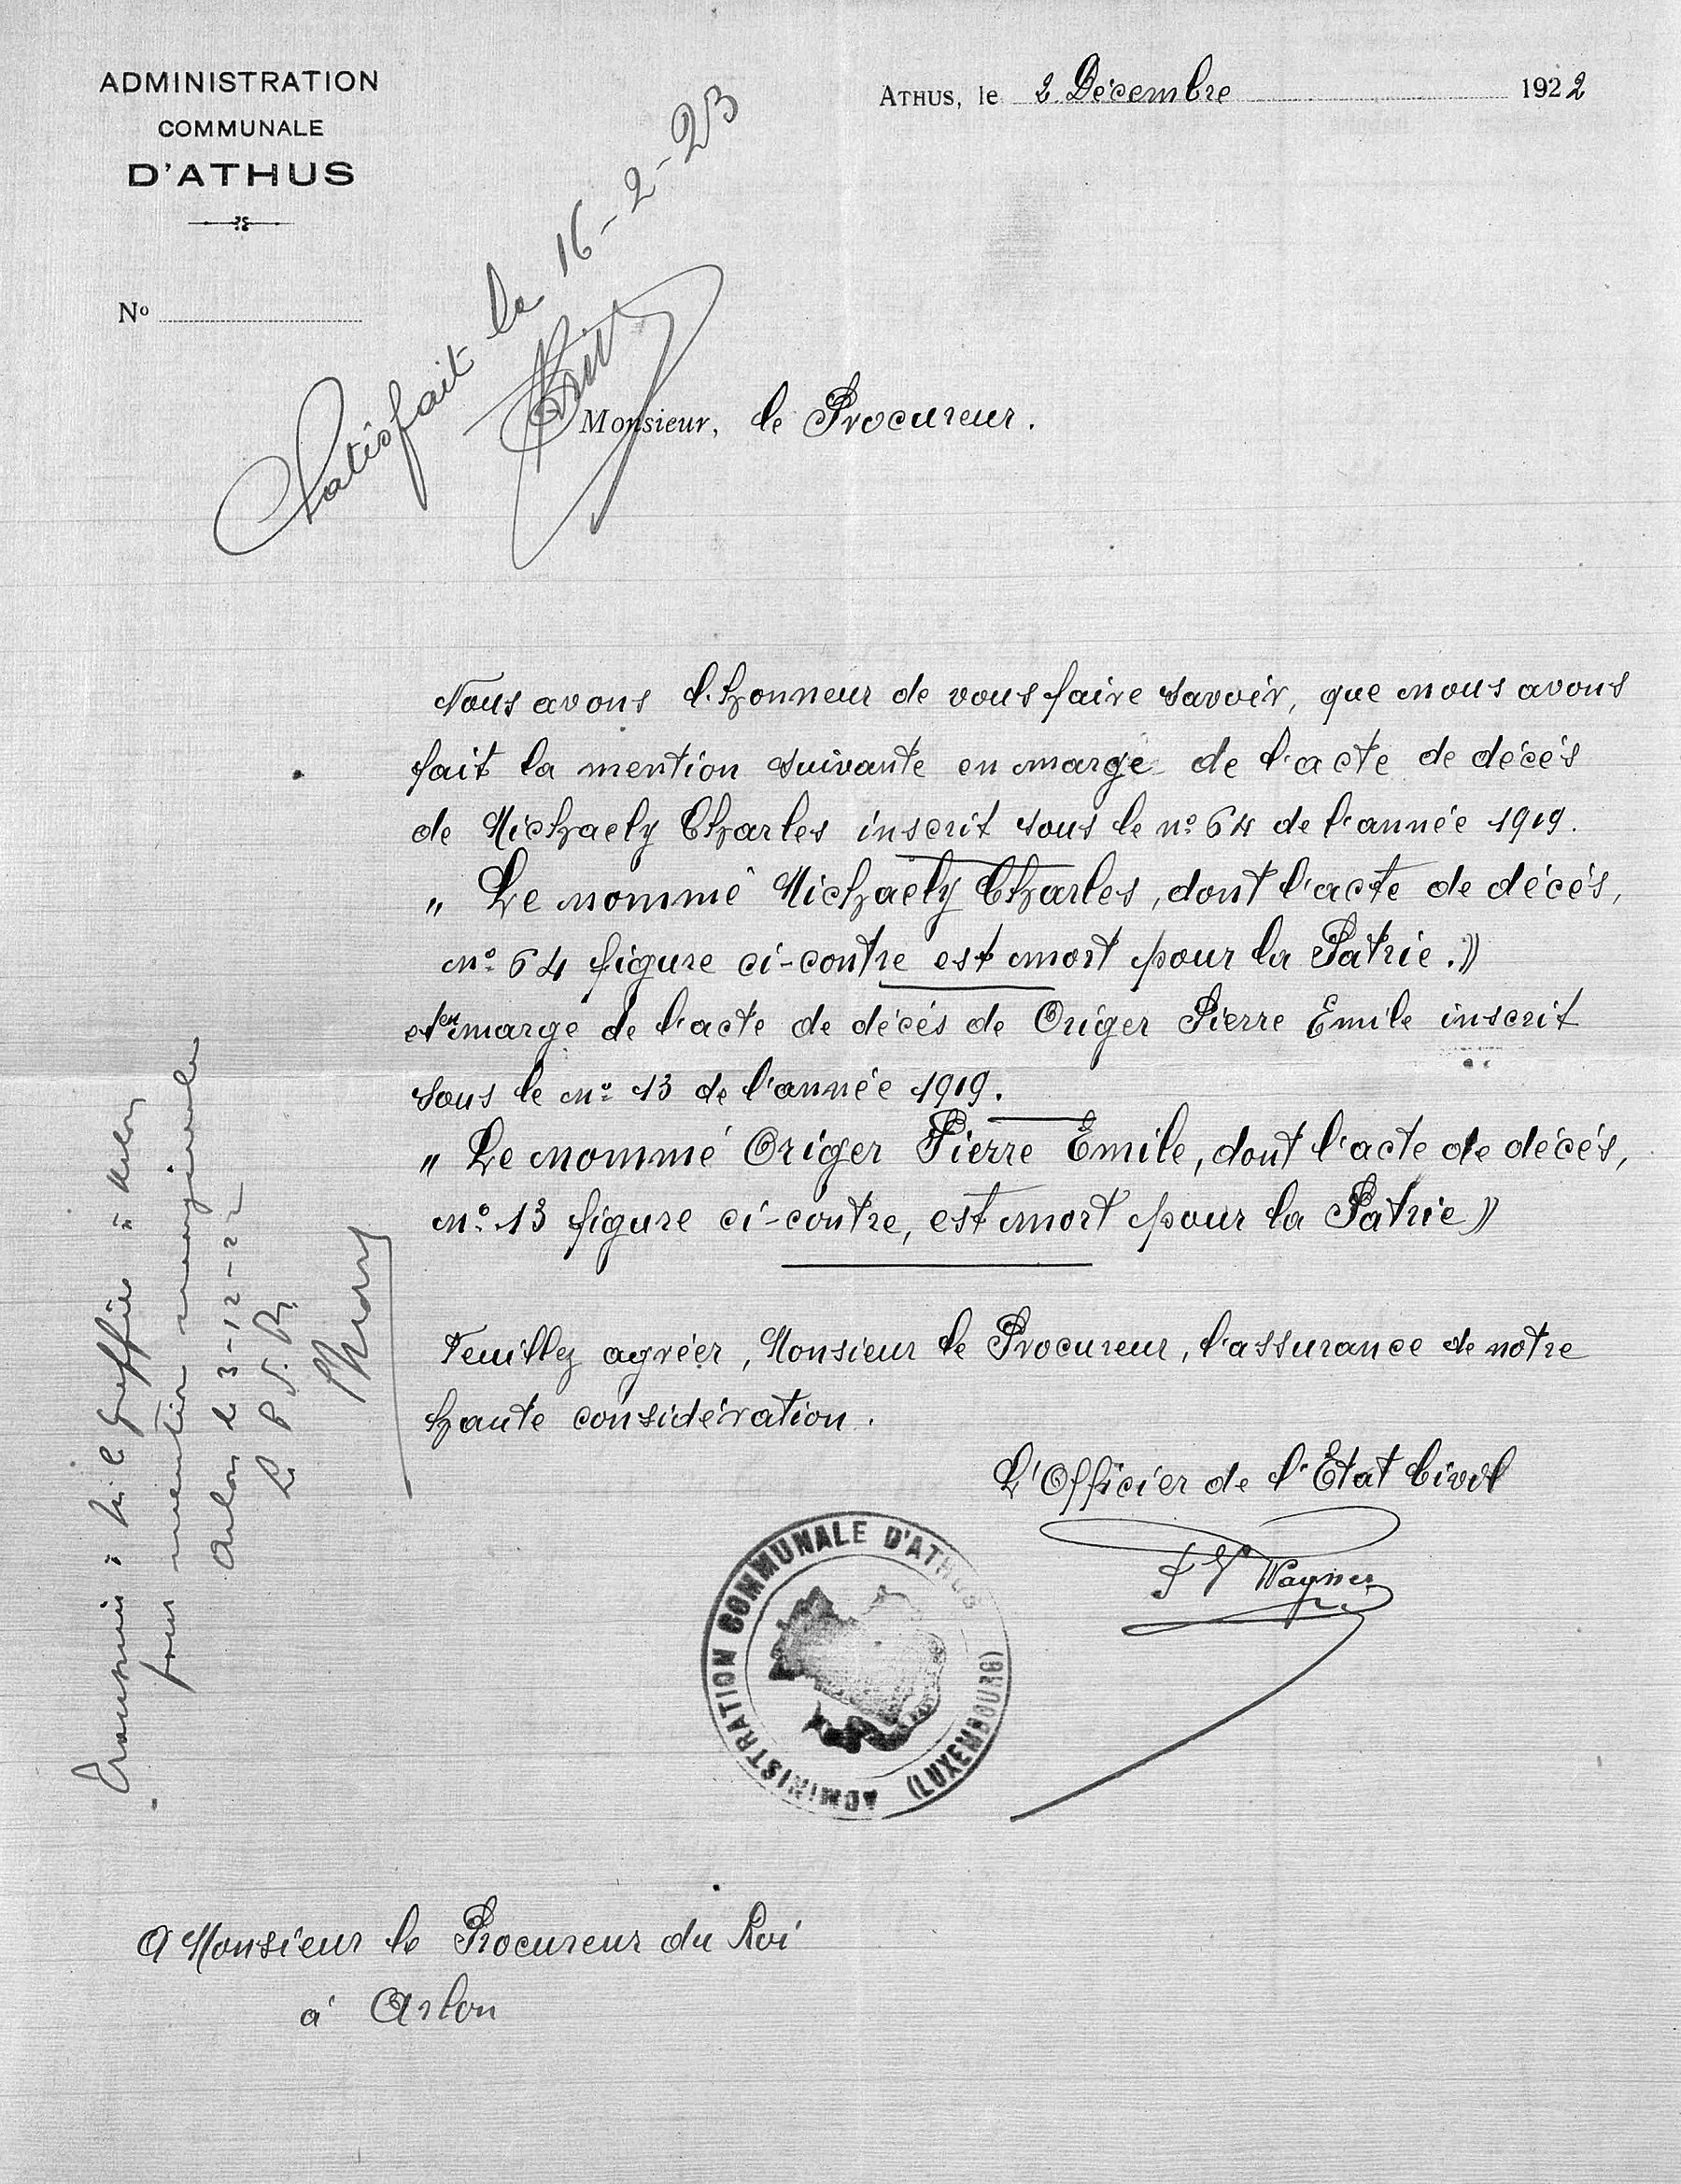 ADMINISTRATION
COMMUNALE
D'ATHUS
Nº
ATHUS, le 2 Décembre 1922
Satisfait le 16-2-23
Monsieur, le Procureur.
Nous avons l'honneur de vous faire savoir, que nous avons
fait la mention suivante en marge de l'acte de décés
de Michaely Charles inscrit sous le nº 64 de l'année 1919.
„ Le nommé Michaely Charles, dont l'acte de décés,
nº 64 figure ci-contre est mort pour la Patrie.»
et en marge de l'acte de décés de Origer Pierre Emile inscrit
sous le nº 13 de l'année 1919.
„ Le nommé Origer Pierre Emile, dont l'acte de décés,
nº 13 figure ci-contre, est mort pour la Patrie»
Veuillez agréer, Monsieur le Procureur, l'assurance de notre
haute considération.
L'Officier de l'Etat Civil
Wagner
ADMINISTRATION COMMUNALE D'ATHUS
(LUXEMBOURG)
A Monsieur le Procureur du Roi
à Arlon
Transmis à le Greffier à Arlon
pour mention marginale
Arlon le 3-12-22
Le P. d. R.